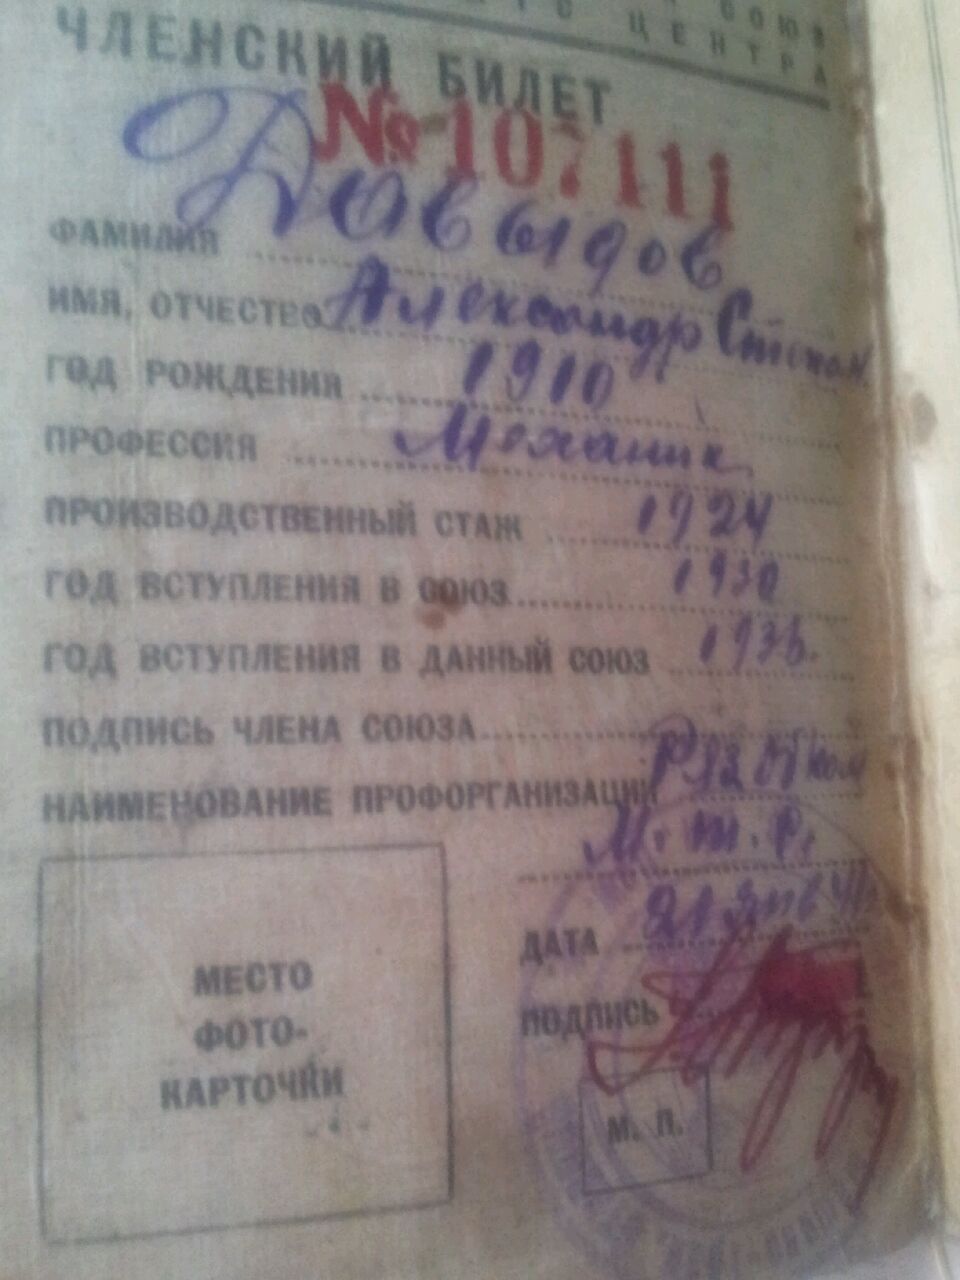 СОЮЗ
ЦЕНТРА
ЧЛЕНСКИЙ БИЛЕТ
№ 107111
ФАМИЛИЯ Давыдов
ИМЯ, ОТЧЕСТВО Александр Степан.
ГОД РОЖДЕНИЯ 1910
ПРОФЕССИЯ Механик
ПРОИЗВОДСТВЕННЫЙ СТАЖ 1924
ГОД ВСТУПЛЕНИЯ В СОЮЗ 1930
ГОД ВСТУПЛЕНИЯ В ДАННЫЙ СОЮЗ 193
ПОДПИСЬ ЧЛЕНА СОЮЗА
НАИМЕНОВАНИЕ ПРОФОРГАНИЗАЦИИ
М. т. с.
ДАТА 21 янв 41
ПОДПИСЬ
МЕСТО
ФОТО-
КАРТОЧКИ
М. П.